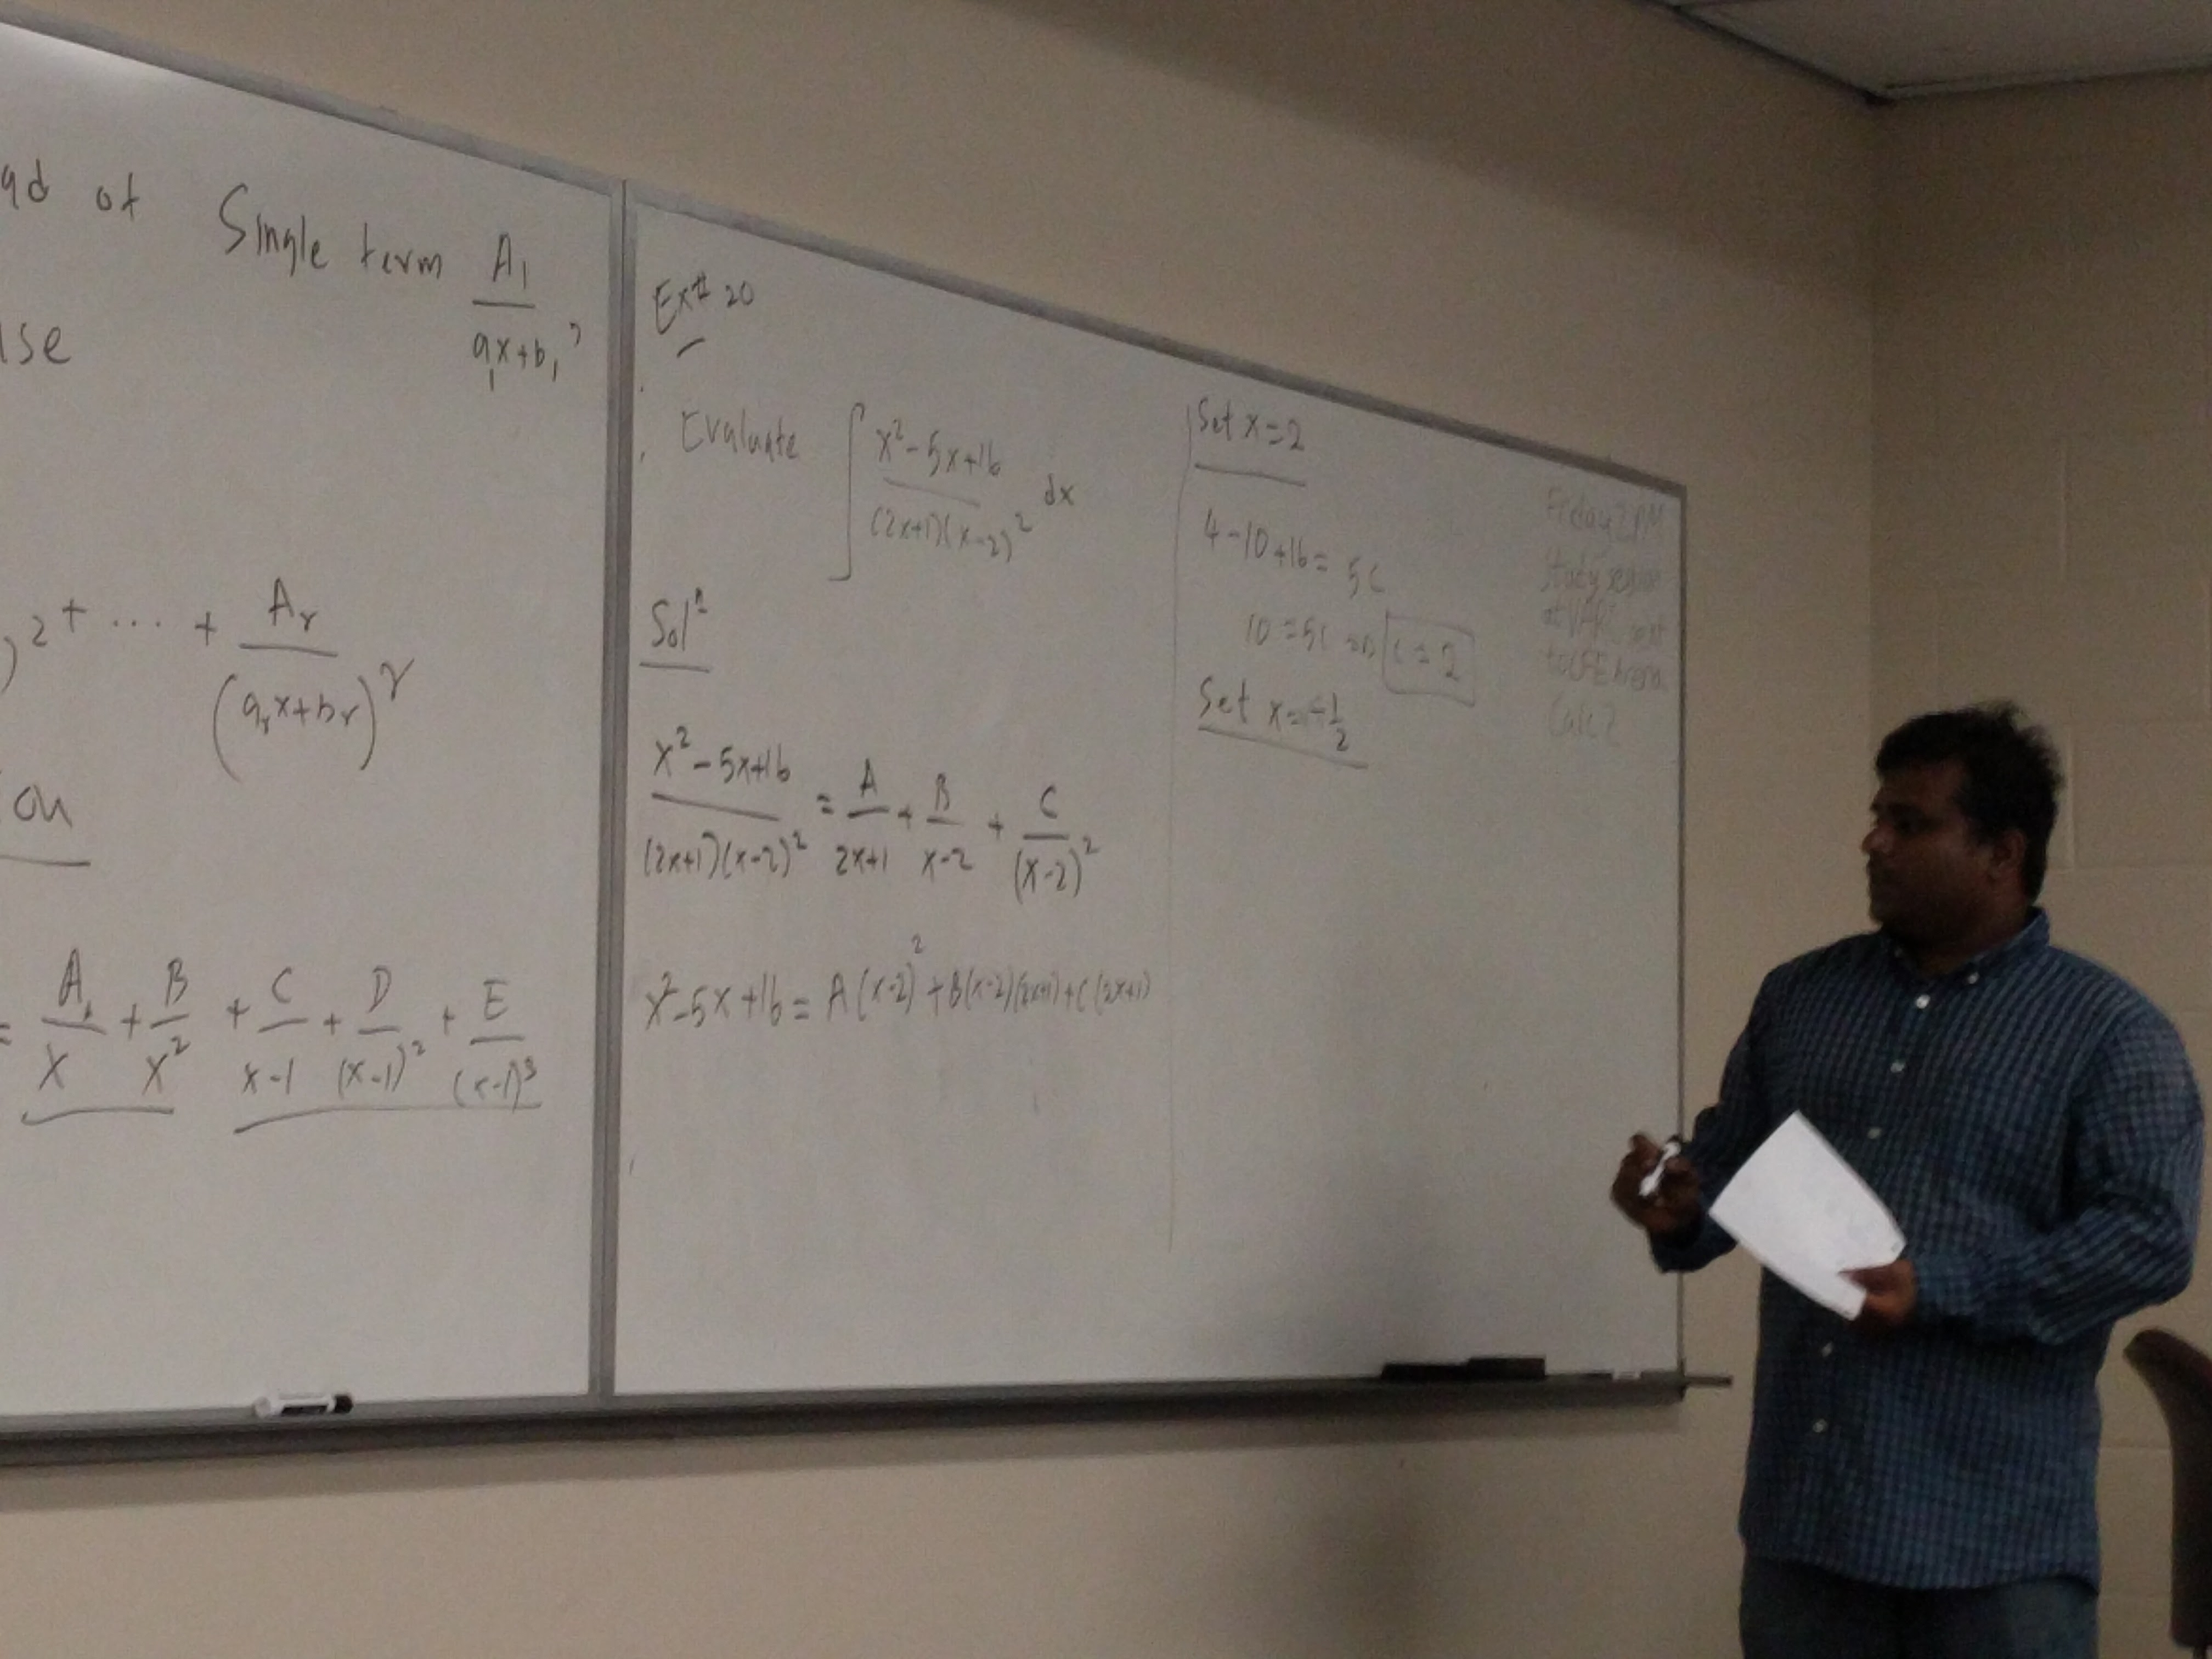 ad of Single term A₁/(a₁x+b₁),
use
)² + ... + Aᵣ/(aᵣx+bᵣ)ʳ
on
= A/x + B/x² + C/(x-1) + D/(x-1)² + E/(x-1)³
Ex# 20
Evaluate ∫ (x²-5x+16)/((2x+1)(x-2)²) dx
Solⁿ
(x²-5x+16)/((2x+1)(x-2)²) = A/(2x+1) + B/(x-2) + C/(x-2)²
x²-5x+16 = A(x-2)² + B(x-2)(2x+1) + C(2x+1)
Set x=2
4-10+16 = 5C
10 = 5C ⇒ C = 2
Set x = -1/2
Friday 2 PM
Study session
at VARC next
to CFE Arena
Calc 2